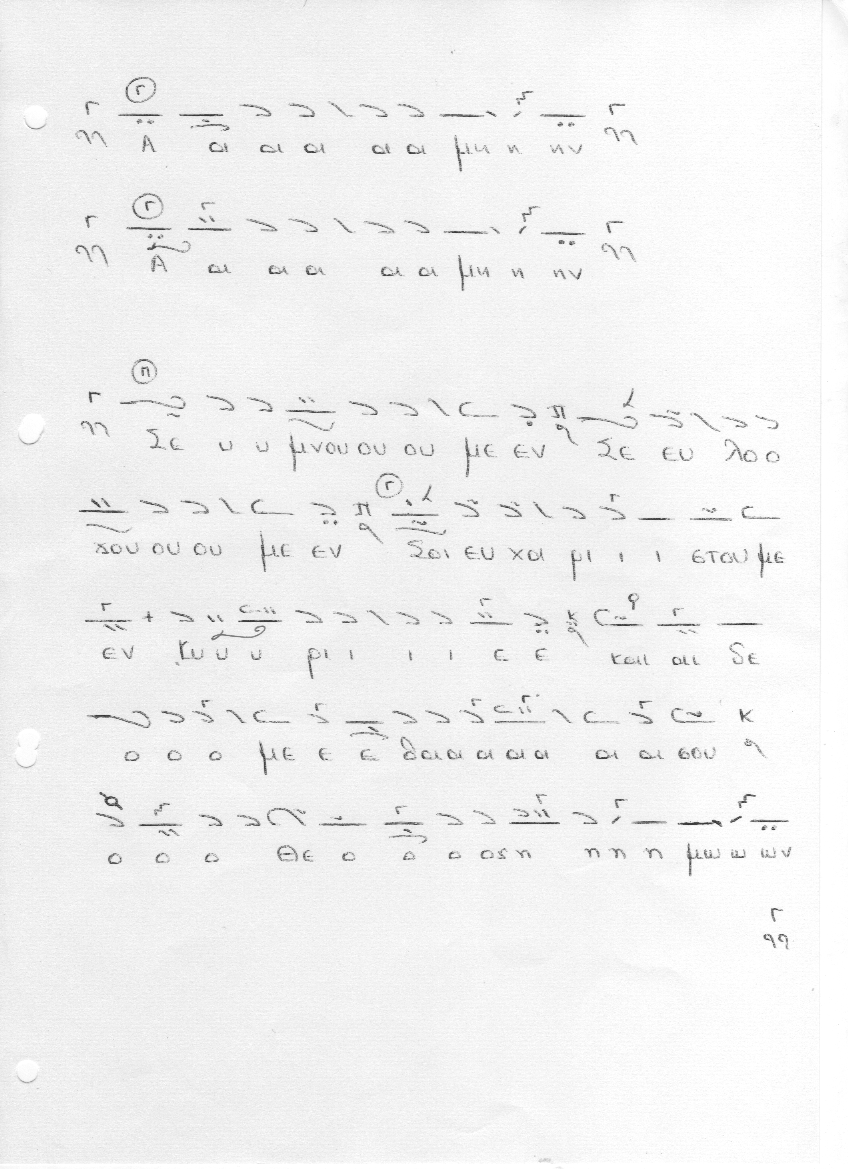 Α α α α α α μη η ην
Α α α α α α μη η ην
Σε υ υ μνου ου ου με εν Σε ευ λο ο
γου ου ου με εν Σοι ευ χα ρι ι ι στου με
εν Κυ υ υ ρι ι ι ι ε ε και αι δε
ο ο ο με ε ε θα α α α α α α σου
ο ο ο Θε ο ο ο ος η η η η μω ω ων